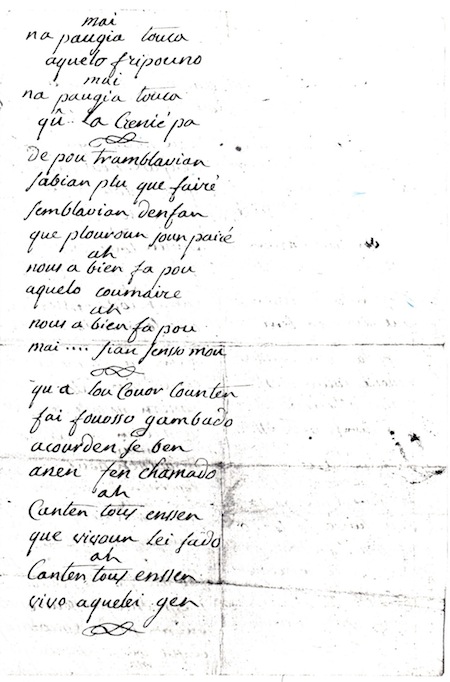 mai
na paugia touca
aquelo fripouno
mai
na paugia touca
qû.. La Crenié pa
de pou tramblavian
sabian plu que fairé
semblavian denfan
que plouroun soun pairé
ah
nous a bien fa pou
aquelo coumaire
ah
nous a bien fa pou
mai .... sian senso mou
qu a lou Couor Counten
fai fouosso gambado
acourden se ben
anen fen chamado
ah
Canten tous enssen
que vivoun Lei fado
ah
Canten tous enssen
vivo aquelei gen